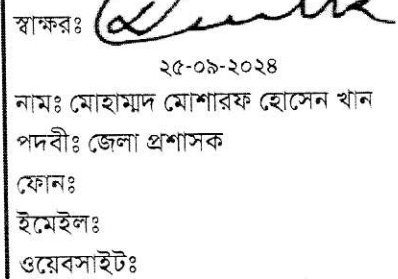 স্বাক্ষরঃ
২৫-০৯-২০২৪
নামঃ মোহাম্মদ মোশারফ হোসেন খান
পদবীঃ জেলা প্রশাসক
ফোনঃ
ইমেইলঃ
ওয়েবসাইটঃ